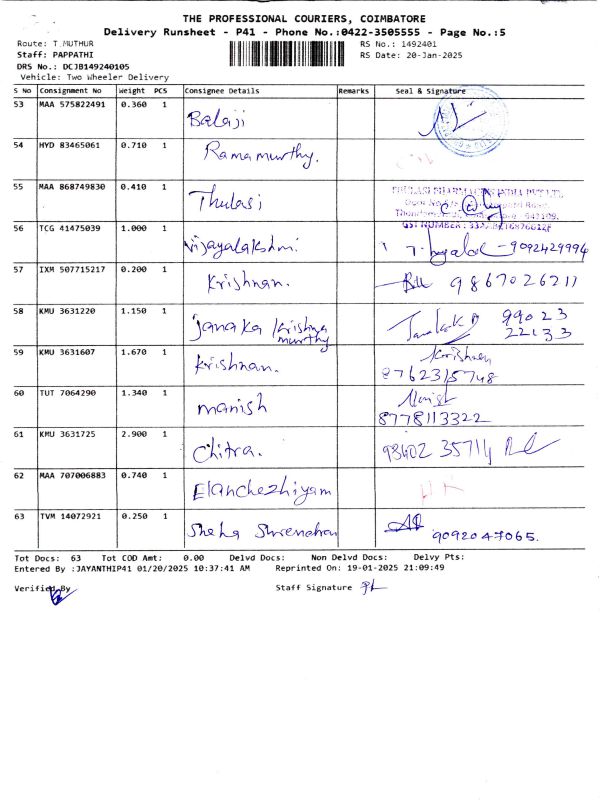 THE PROFESSIONAL COURIERS, COIMBATORE
Delivery Runsheet - P41 - Phone No.:0422-3505555 - Page No.:5
Route: T.MUTHUR RS No.: 1492401
Staff: PAPPATHI RS Date: 20-Jan-2025
DRS No.: DCJB149240105
Vehicle: Two Wheeler Delivery
S No Consignment No Weight PCS Consignee Details Remarks Seal & Signature
53 MAA 575822491 0.360 1 Balaji
54 HYD 83465061 0.710 1 Ramamurthy.
55 MAA 868749830 0.410 1 Thulasi
THULASI PHARMACIES INDIA PVT LTD
GST NUMBER :
56 TCG 41475039 1.000 1 Vijayalakshmi - 9092429994
57 IXM 507715217 0.200 1 Krishnan. 9867026211
58 KMU 3631220 1.150 1 Janaka Krishna murthy 99023 22133
59 KMU 3631607 1.670 1 Krishnan. Krishnan
8762315748
60 TUT 7064290 1.340 1 Manish
8778113322
61 KMU 3631725 2.900 1 Chitra. 93402 35714
62 MAA 707006883 0.740 1 Elanchezhiyam
63 TVM 14072921 0.250 1 Sneha 9092047065.
Tot Docs: 63 Tot COD Amt: 0.00 Delvd Docs: Non Delvd Docs: Delvy Pts:
Entered By :JAYANTHIP41 01/20/2025 10:37:41 AM Reprinted On: 19-01-2025 21:09:49
Verified By Staff Signature